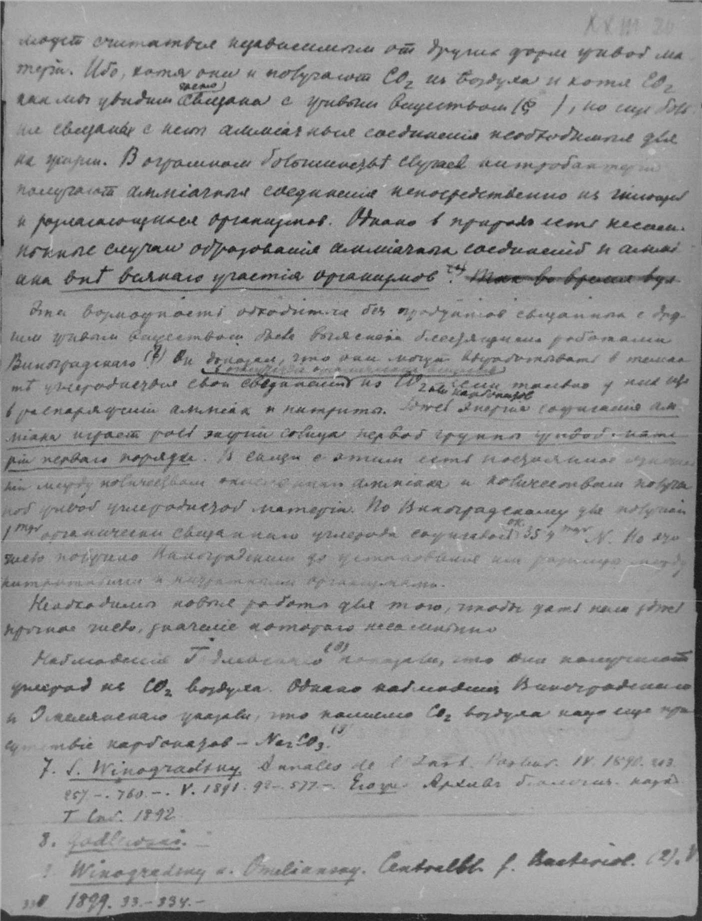 XXIII 20
можетъ считаться независимымъ отъ другихъ формъ живой ма-
теріи. Ибо, хотя они и получаютъ CO2 изъ воздуха и хотя CO2
какъ мы увидимъ часто связана съ живымъ веществомъ (§ ), но еще боль-
ше связаны съ нимъ амміачныя соединенія необходимыя для
ихъ жизни. Въ огромномъ большинствѣ случаевъ нитробактеріи
получаютъ амміачныя соединенія непосредственно изъ гніющихъ
и разлагающихся организмовъ. Однако въ природѣ есть несом-
нѣнные случаи образованія амміачныхъ соединеній и аммі-
ака внѣ всякаго участія организмовъ. Такъ во время вул-
Эта возможность обходиться безъ продуктовъ связанныхъ съ дру-
гимъ живымъ веществомъ была выяснена блестящими работами
Виноградскаго (7) Онъ доказалъ, что они могутъ вырабатывать въ темно-
тѣ углеродистыя свои соединенія изъ CO2 или карбонатовъ если только у нихъ есть
въ распоряженіи амміакъ и нитриты. Энергія окисленія ам-
міака играетъ роль энергіи солнца первой группы живой мате-
ріи перваго порядка. Въ связи съ этимъ есть постоянное
между количествомъ окисленнаго амміака и количествомъ получен-
ной живой углеродистой матеріи. По Виноградскому для полученія
1 mgr органически связаннаго углерода ок. 35,4 mgr N. Но это
число получено Виноградскимъ до установленія имъ разницы между
нитритными и нитратными организмами.
Необходимы новыя работы для того, чтобы дать намъ это
прочное число, значеніе котораго несомнѣнно
Наблюденія Годлевскаго (8) показали, что они получаютъ
углеродъ изъ CO2 воздуха. Однако наблюденія Виноградскаго
и Омелянскаго указали, что помимо CO2 воздуха надо еще при-
сутствіе карбонатовъ – Na2CO3 (9)
7. S. Winogradsky Annales de l'Inst. Pasteur. IV. 1890. 213.
257 –. 760. –. V. 1891. 92 –. 577 –. Его же Архивъ біологич. наукъ
I Спб. 1892
8. Godlewski. –
Winogradsky u. Omeliansky. Centralbl. f. Bacteriol. (2). V.
1899. 33. – 334. –